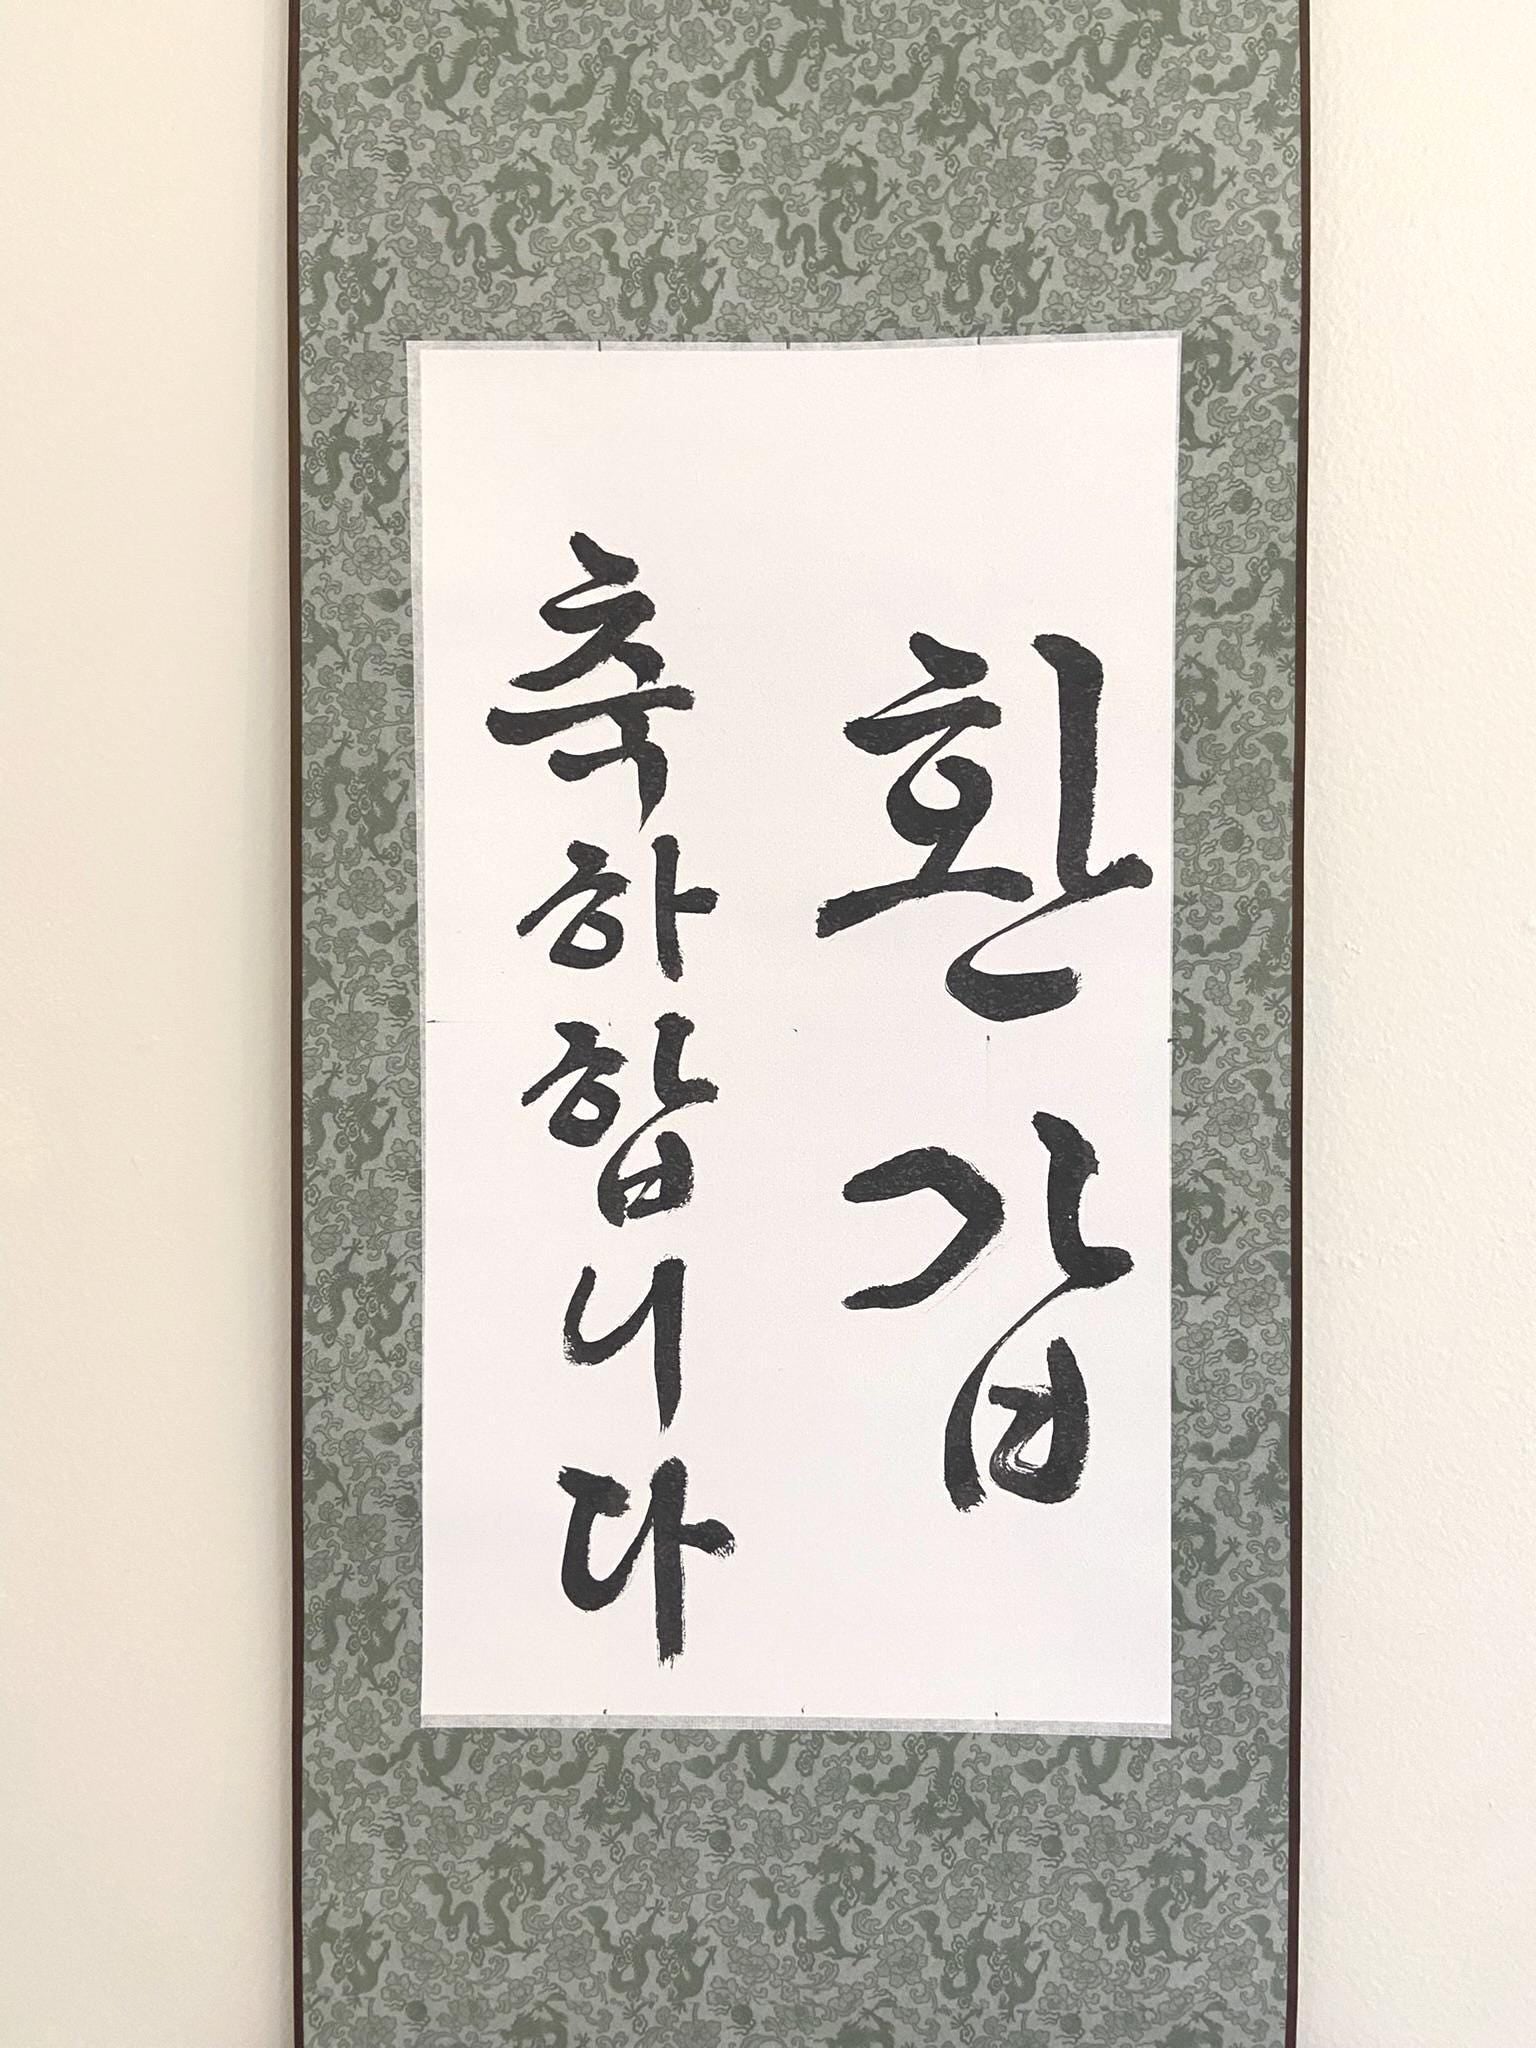 환갑
축하합니다